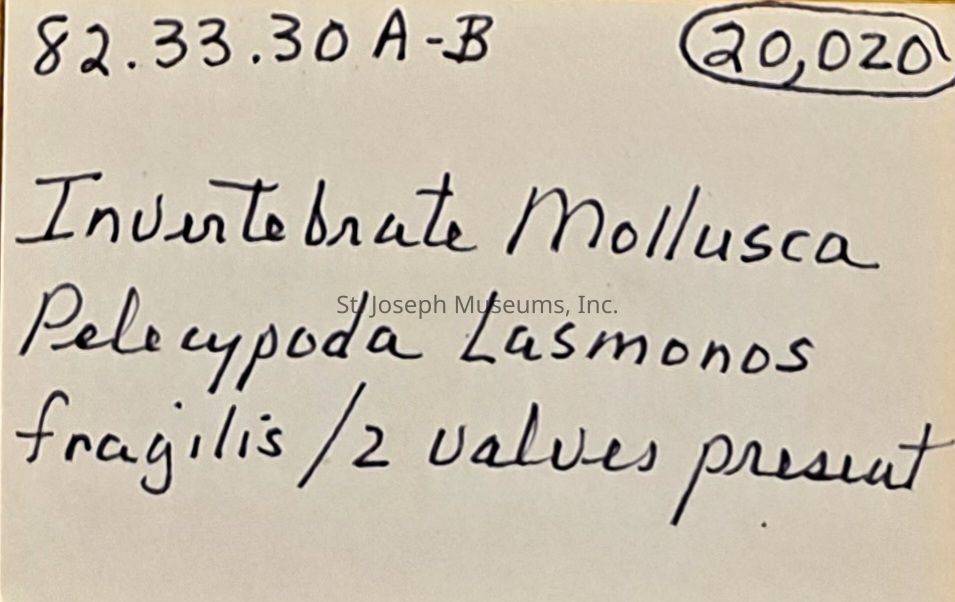 82.33.30 A-B 20,020
Invertebrate Mollusca
St. Joseph Museums, Inc.
Pelecypoda Lasmonos
fragilis /2 valves present